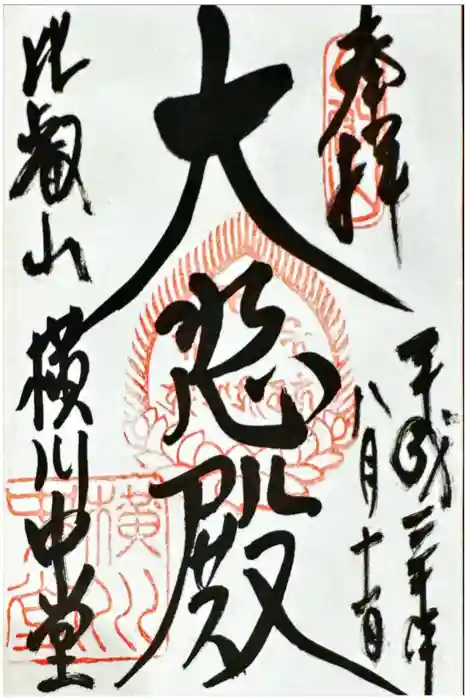 奉拝
平成二十年
八月十一日
大悲殿
比叡山 横川中堂
横川
中堂